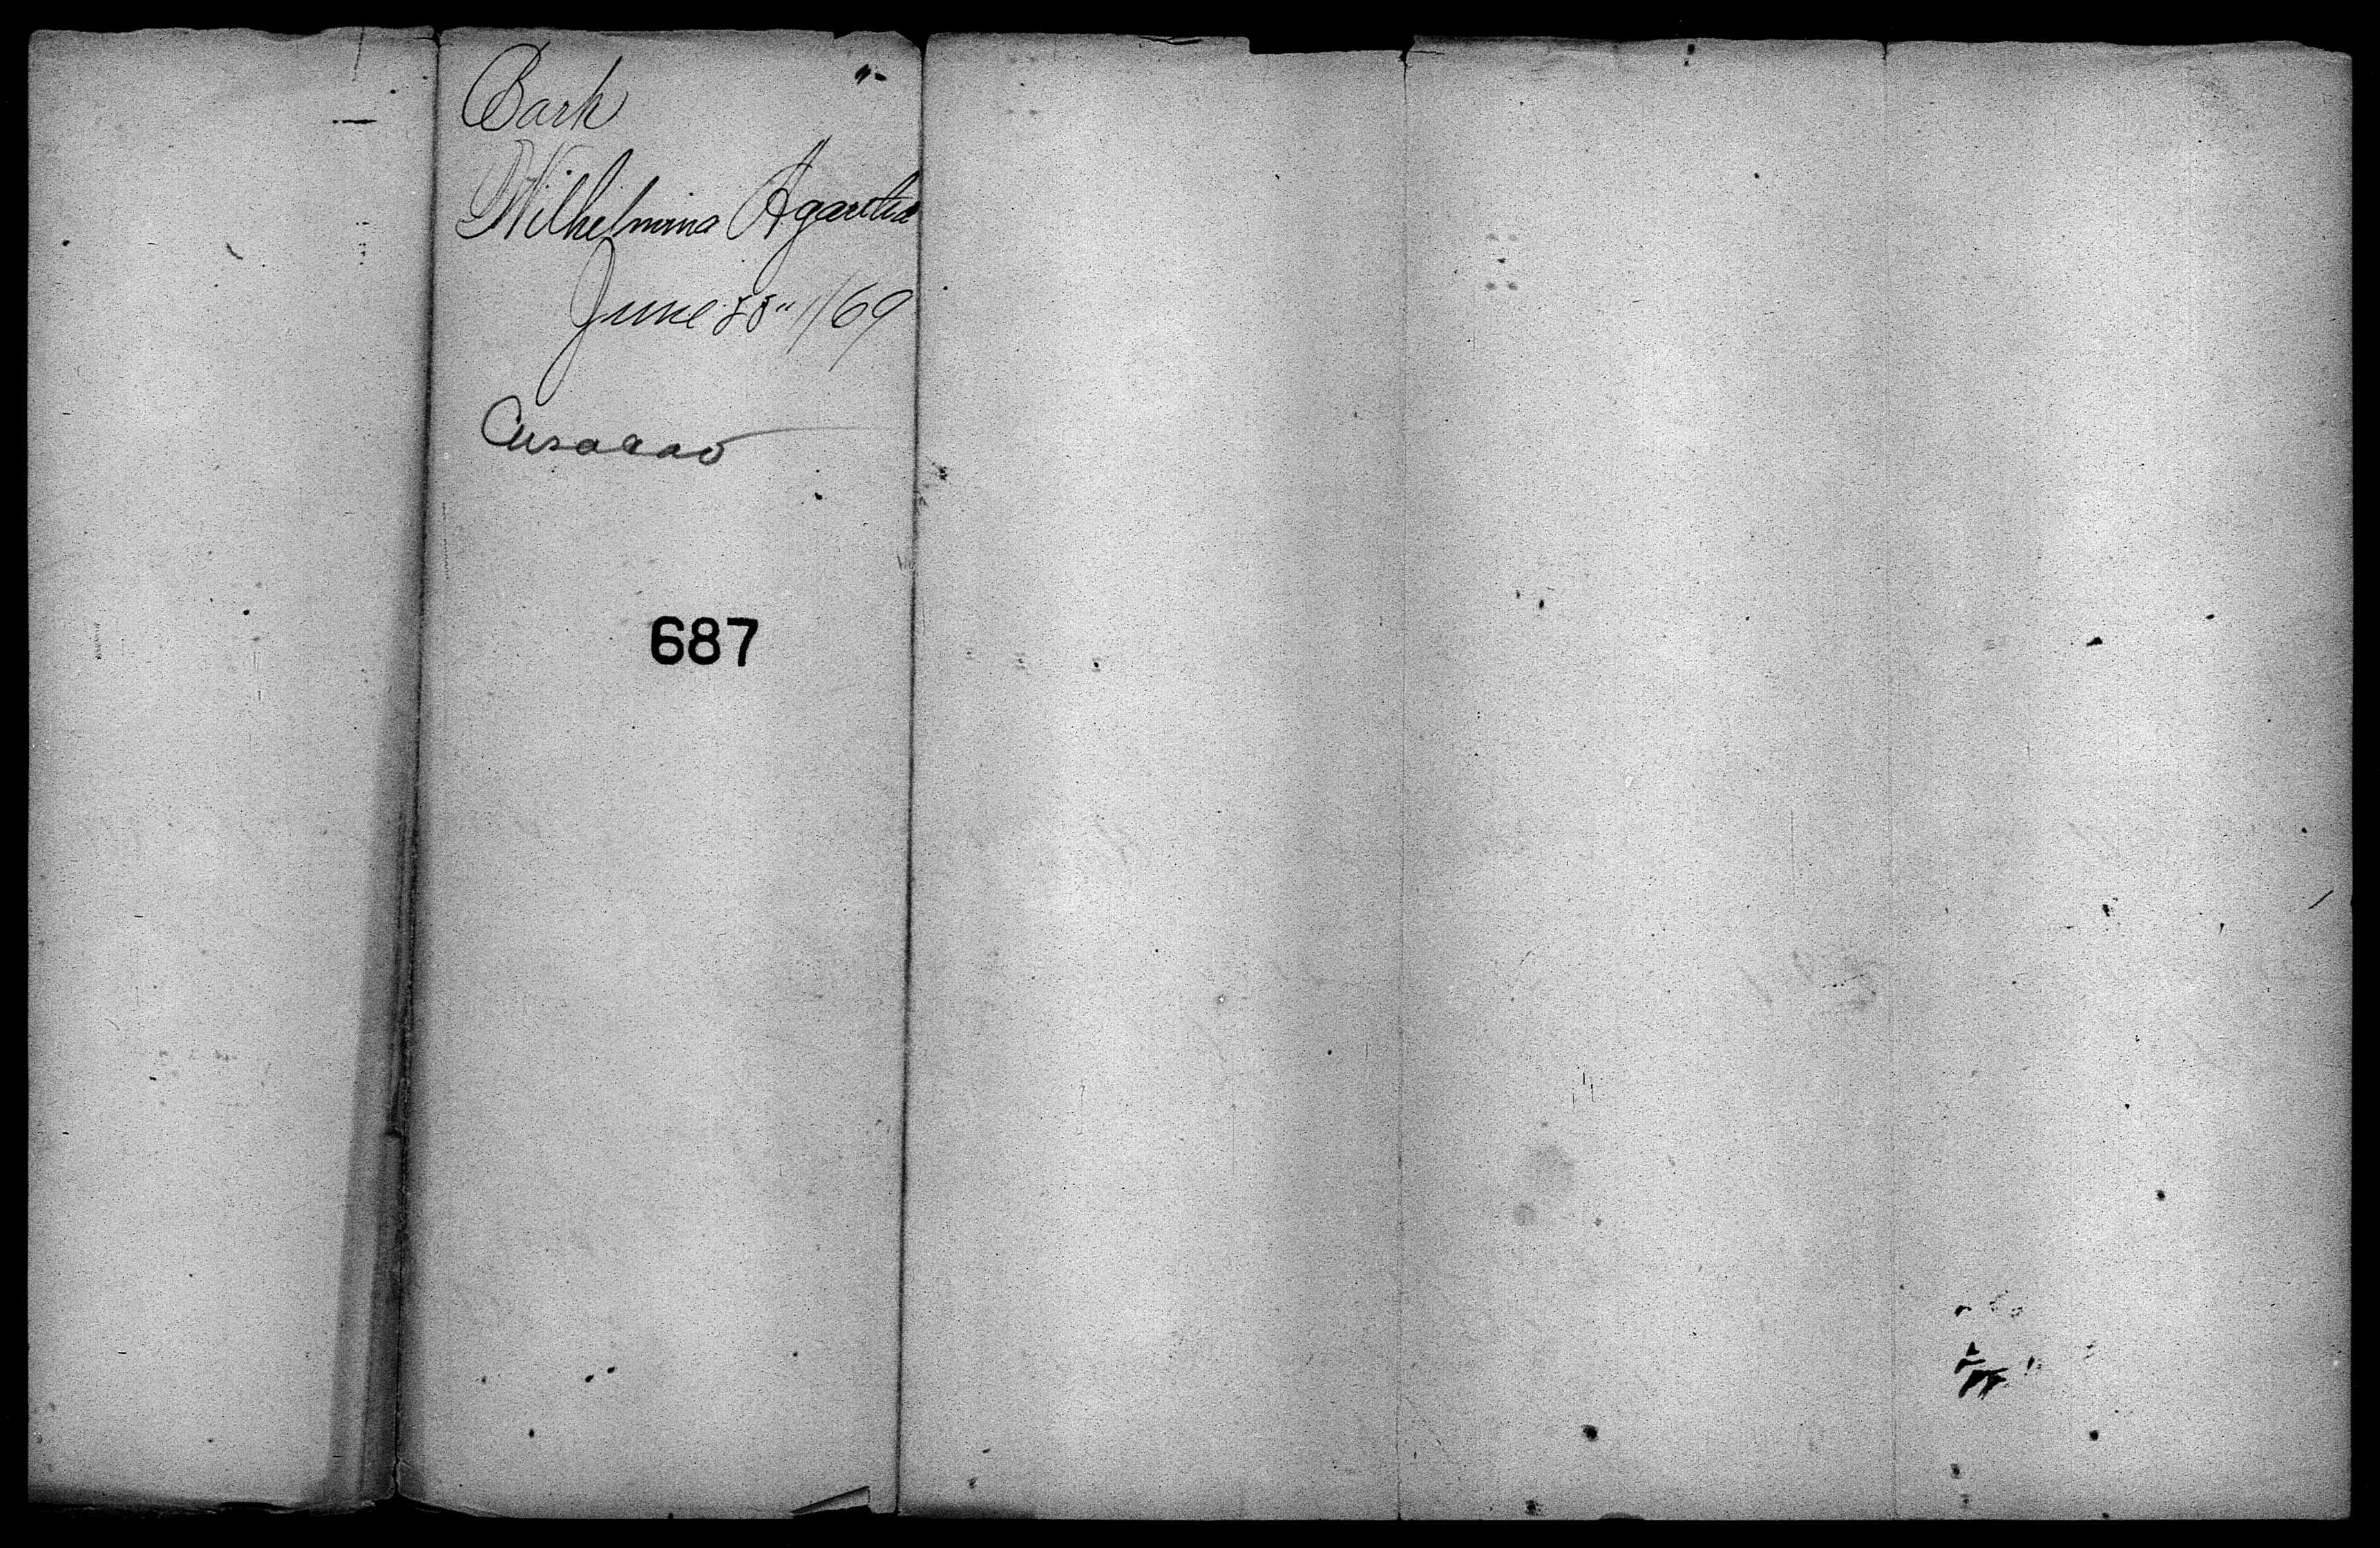 Bark
Wilhelmina Agartha
June 28" /69
Curacao
687